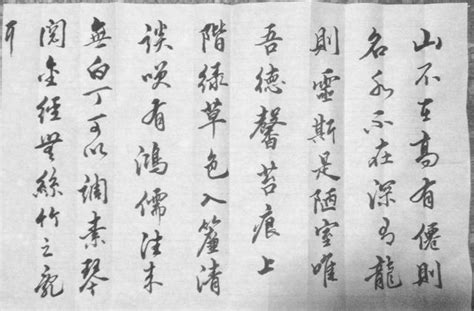 山不在高有僊則
名水不在深有龍
則靈斯是陋室唯
吾德馨苔痕上
階綠草色入簾清
談咲有鴻儒往来
無白丁可以調素琴
閱金經無絲竹之亂
耳